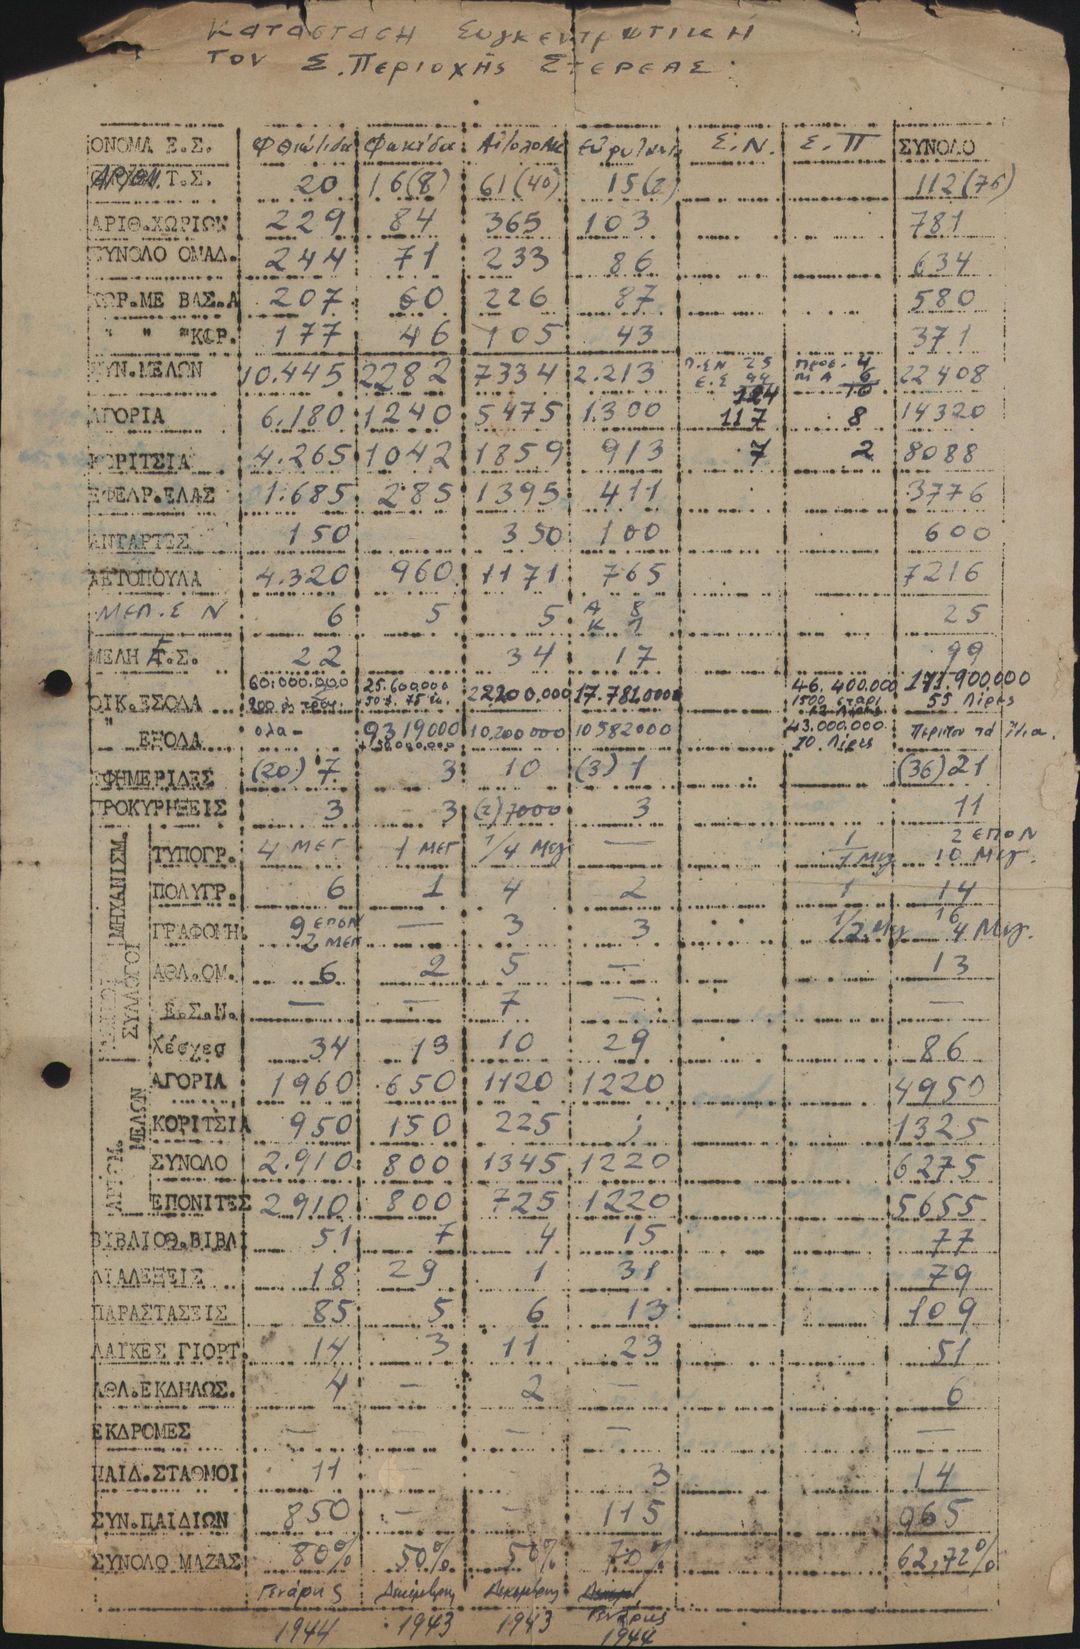 Κατάσταση Συγκεντρωτική
τον Σ. Περιοχής Στερεάς.
ΟΝΟΜΑ Ε.Σ. Φθιώτιδα Φωκίδα Αἰτολοακ Εὐρυτανία Σ.Ν. Σ.Π ΣΥΝΟΛΟ
ΑΡΙΘΜ. Τ.Σ. 20 16(8) 61(40) 15(2) 112(75)
ΑΡΙΘ.ΧΩΡΙΩΝ 229 84 365 103 781
ΣΥΝΟΛΟ ΟΜΑΔ. 244 71 233 86 634
ΧΩΡ.ΜΕ ΒΑΣ.Α 207 60 226 87 580
" " " ΚΟΡ. 177 46 105 43 371
ΣΥΝ.ΜΕΛΩΝ 10.445 2282 7334 2.213 Π.ΣΝ 25 Ε.Σ 99 124 Προσ. 4 Μ Α 6 10 22408
ΑΓΟΡΙΑ 6.180 1240 5475 1.300 117 8 14320
ΚΟΡΙΤΣΙΑ 4.265 1042 1859 913 7 2 8088
ΕΦΕΔΡ.ΕΛΑΣ 1.685 285 1395 411 3776
ΑΝΤΑΡΤΕΣ 150 350 100 600
ΑΕΤΟΠΟΥΛΑ 4.320 960 1171 765 7216
ΜΕΠ.Σ Ν 6 5 5 Α 8 Κ 1 25
ΜΕΛΗ Τ.Σ. 22 34 17 99
ΟΙΚ.ΕΣΟΔΑ 60.000.000 25.600.000 22200.000 17.7820000 46.400.000 1500 σταρι 12 Λίρες 171.900.000 55 Λίρες
" ΕΞΟΔΑ ολα- 9319000 10,200000 10582000 43.000.000 10 Λίρες Περίπου τά Ἴδια.
ΕΦΗΜΕΡΙΔΕΣ (20) 7 3 10 (3) 1 (36) 21
ΠΡΟΚΥΡΗΞΕΙΣ 3 3 (2) 7000 3 11
ΜΗΧΑΝΙΣΜ.
ΤΥΠΟΓΡ. 4 ΜΕΓ 1 ΜΕΓ 1/4 Μεγ — 1/1 Μεγ 2 ΕΠΟΝ 10 Μεγ.
ΠΟΛΥΓΡ. 6 1 4 2 1 14
ΓΡΑΦΟΜΗ. 9 ΕΠΟΝ 2 ΜΕΓ — 3 3 1/2 Μεγ 16 4 Μεγ.
ΣΥΛΛΟΓΟΙ
ΑΘΛ.ΟΜ. 6 2 5 — 13
Ε.Σ.Ν. — — 7 — —
Λέσχες 34 13 10 29 86
ΑΡΙΘΜ. ΜΕΛΩΝ
ΑΓΟΡΙΑ 1960 650 1120 1220 4950
ΚΟΡΙΤΣΙΑ 950 150 225 ; 1325
ΣΥΝΟΛΟ 2.910 800 1345 1220 6275
ΕΠΟΝΙΤΕΣ 2910 800 725 1220 5655
ΒΙΒΛΙΟΘ.ΒΙΒΛΙ 51 7 4 15 77
ΔΙΑΛΕΞΕΙΣ 18 29 1 31 79
ΠΑΡΑΣΤΑΣΕΙΣ 85 5 6 13 109
ΛΑΙΚΕΣ ΓΙΟΡΤ. 14 3 11 23 51
ΑΘΛ.ΕΚΔΗΛΩΣ. 4 — 2 — 6
ΕΚΔΡΟΜΕΣ — — — — —
ΠΑΙΔ.ΣΤΑΘΜΟΙ 11 — 3 14
ΣΥΝ.ΠΑΙΔΙΩΝ 850 — — 115 965
ΣΥΝΟΛΟ ΜΑΖΑΣ 80% 50% 50% 70% 62,72%
Γενάρης Δεκέμβρης Δεκέμβρης Γενάρης
1944 1943 1943 1944